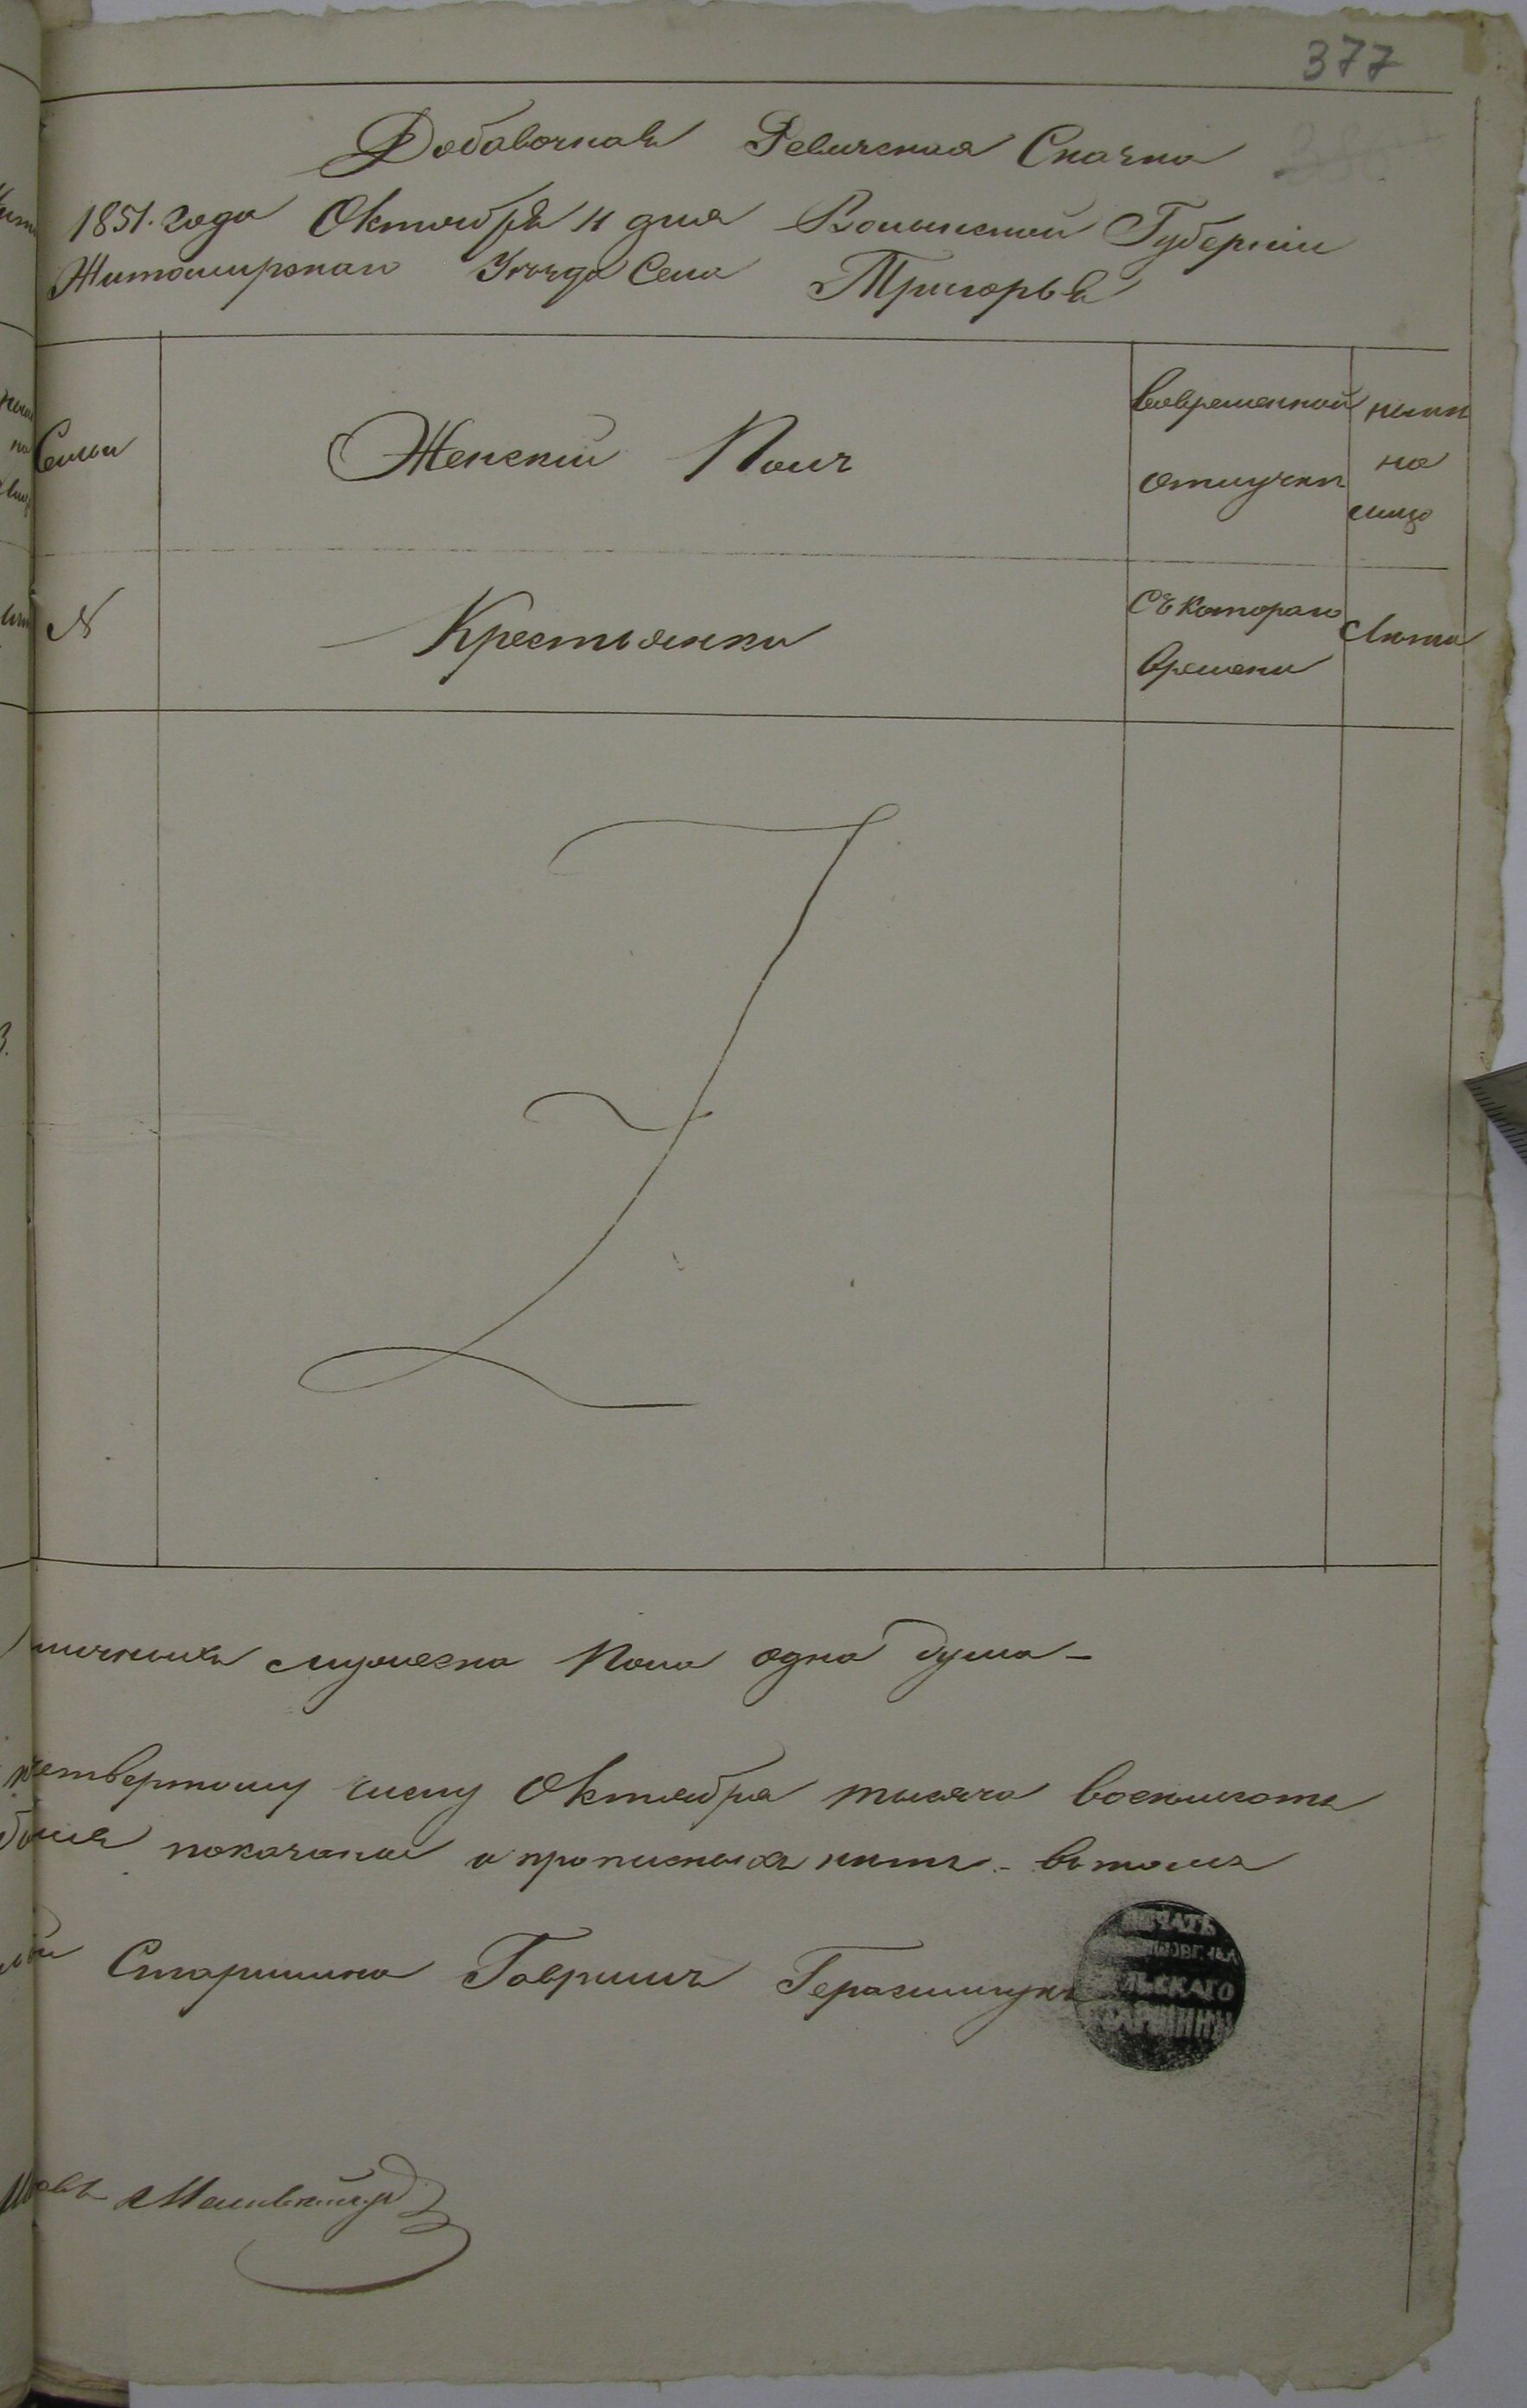 377
Добавочная Ревизская Сказка
1851. года Октября 4 дня Волынской Губерніи
Житомирскаго Уѣзда Села Тригорья
Семьи
Женскій Полъ
во временной
отлучкѣ
нынѣ
на
лицо
№
Крестьянки
Съ котораго
времени
Лѣта
мужеска пола одна душа –
четвертому числу Октября тысяча восемьсотъ
показаны и прописныхъ нѣтъ – въ томъ
Старшина Гаврилъ Герасимчукъ
ПЕЧАТЬ